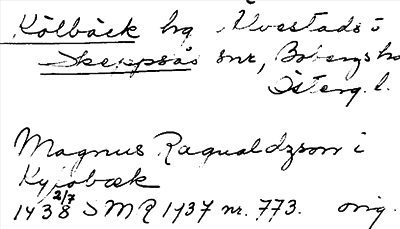 Kölbäck hg Älvestads s
Skeppsås snr, Bobergs h
Österg. l.
Magnus Ragualdzson i
Kylobæk
1438 2/7 SMR 1937 nr. 773. orig.